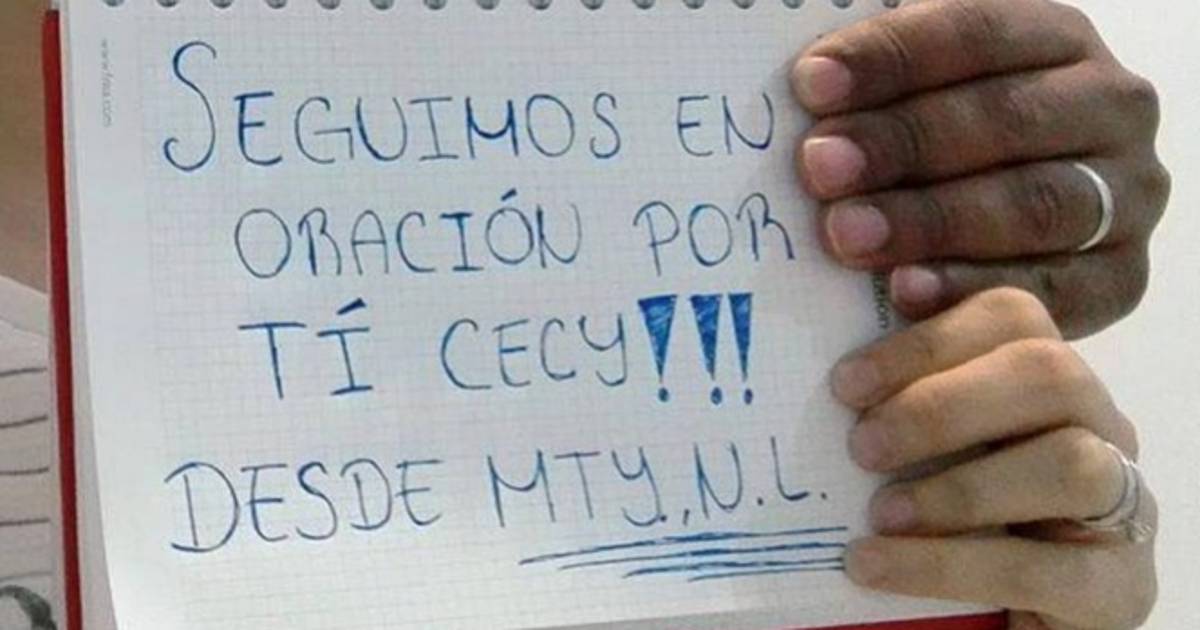 SEGUIMOS EN
ORACIÓN POR
TÍ CECY!!!
DESDE MTY.,N.L.